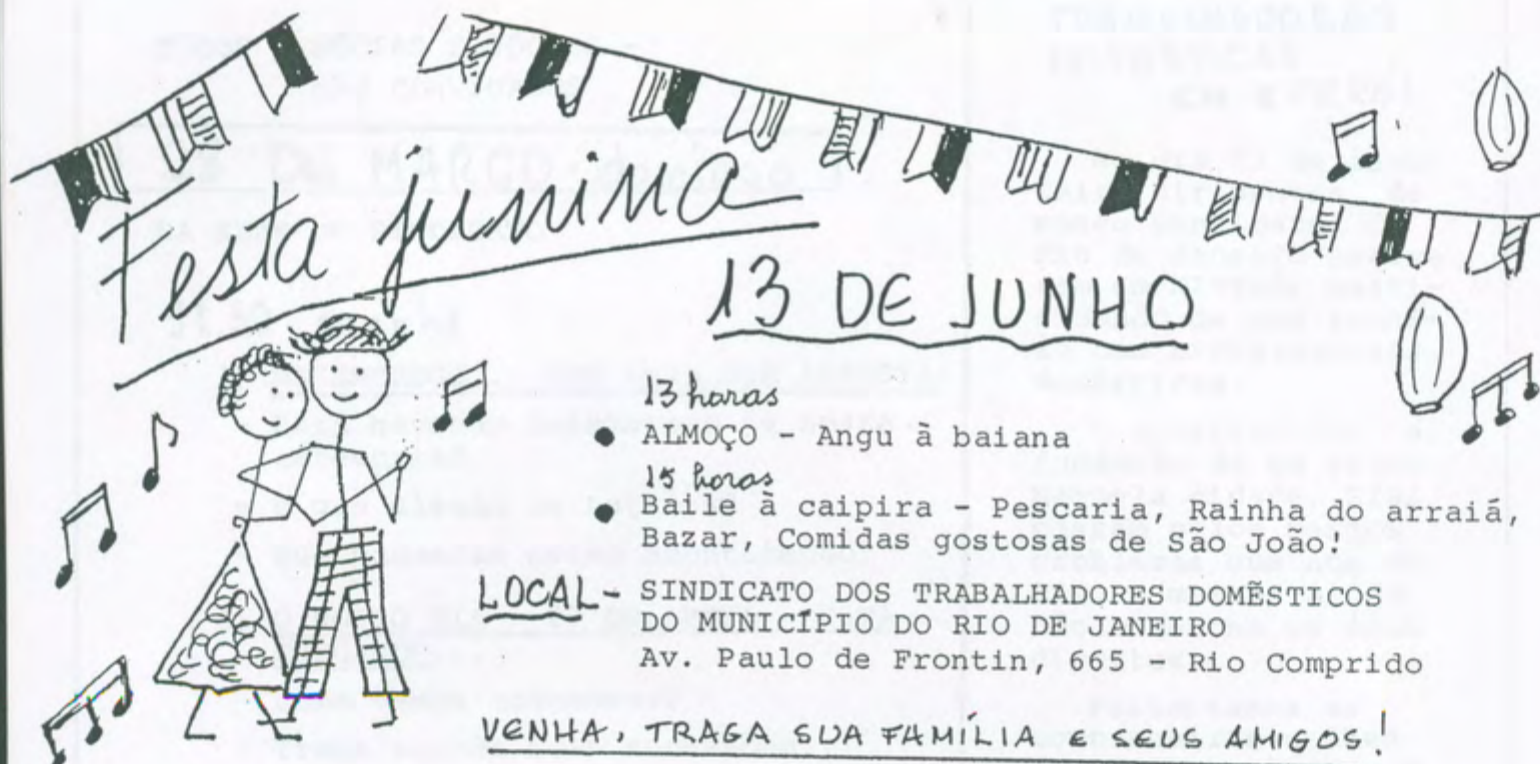 Festa junina
13 DE JUNHO
13 horas
● ALMOÇO - Angu à baiana
15 horas
● Baile à caipira - Pescaria, Rainha do arraiá,
Bazar, Comidas gostosas de São João!
LOCAL - SINDICATO DOS TRABALHADORES DOMÉSTICOS
DO MUNICÍPIO DO RIO DE JANEIRO
Av. Paulo de Frontin, 665 - Rio Comprido
VENHA, TRAGA SUA FAMÍLIA E SEUS AMIGOS!
DE MARÇO